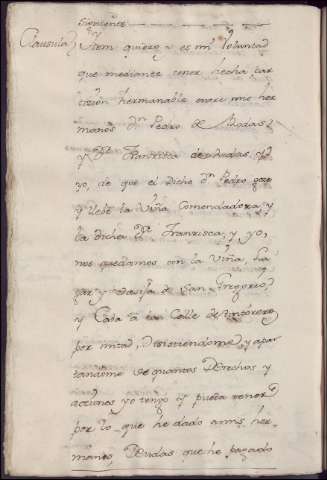 siguiente
Clausula) Ytem quiero y es mi Voluntad
que mediante tener hecha par
ticion hermanable entre mis her
manos Dn Pedro de Rodas
y Da Francisca de Rodas, y
yo, de que el dicho Dn Pedro goze
y llebe la Viña Comendadora, y
la dicha Da Francisca, y yo,
nos quedamos con la Viña, La
gar y vasija de San Gregorio,
y Casa a la Calle de
por mitad, Desistiendome y apar
tandome de quantos Derechos y
acciones yo tengo y pueda tener
por lo que he dado a mis her
manos, Deudas que he pagado